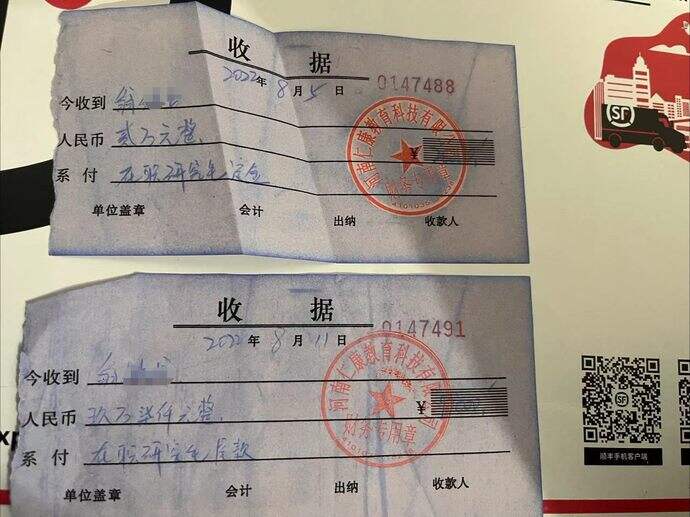 收 据
2022年 8月5日 0147488
今收到 翁
人民币 贰万元整
¥
系 付 在职研究生定金
单位盖章 会计 出纳 收款人
河南仁康教育科技有限公司
财务专用章
收 据
2022年 8月11日 0147491
今收到 翁
人民币 玖万柒仟元整
¥
系 付 在职研究生尾款
单位盖章 会计 出纳 收款人
河南仁康教育科技有限公司
财务专用章
SF
SF
顺丰手机客户端